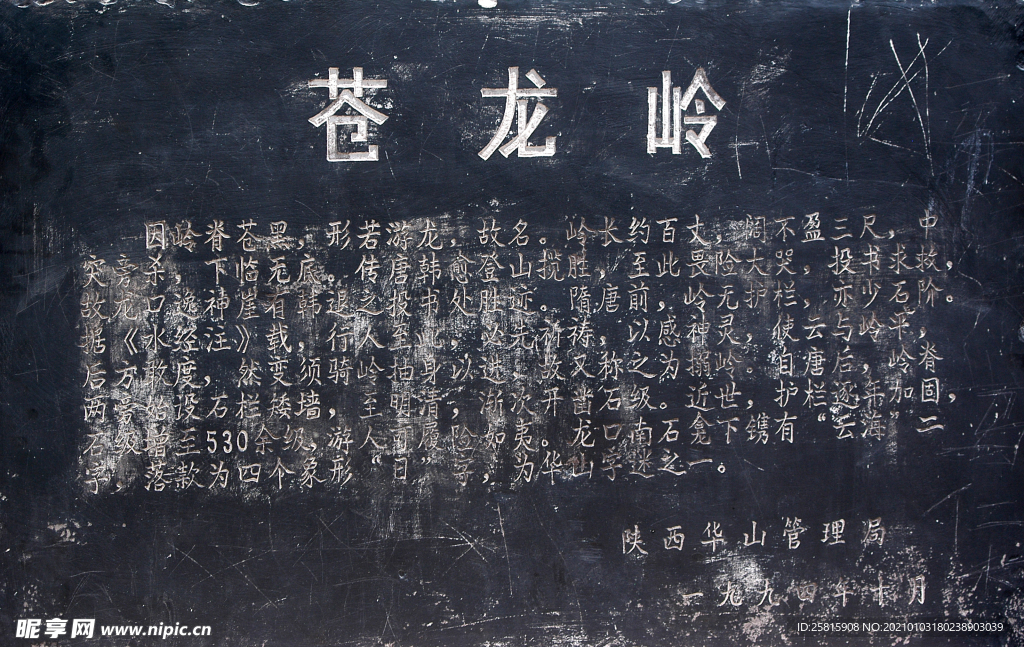 苍龙岭
因岭脊苍黑，形若游龙，故名。岭长约百丈，阔不盈三尺，中
突旁杀，下临无底。传唐韩愈登山揽胜，至此畏险大哭，投书求救，
故龙口逸神崖有韩退之投书处胜迹。隋唐前，岭无护栏，亦少石阶。
据《水经注》载，行人至此，必先祈祷，以感神灵。使云与岭平，
后方敢度，然须骑岭抽身，以进，故又称之为搦岭。自唐后，岭脊
两旁始设石栏矮墙，至明清，渐次开凿石级。近世护栏逐年加固，
石级增至530余级，游人可履险如夷。龙口南龛下镌有“云海”二
字，落款为四个象形“日”字，为华山字迷之一。
陕西华山管理局
一九九四年十月
昵享网 www.nipic.cn
ID:25815908 NO:20210103180238903039